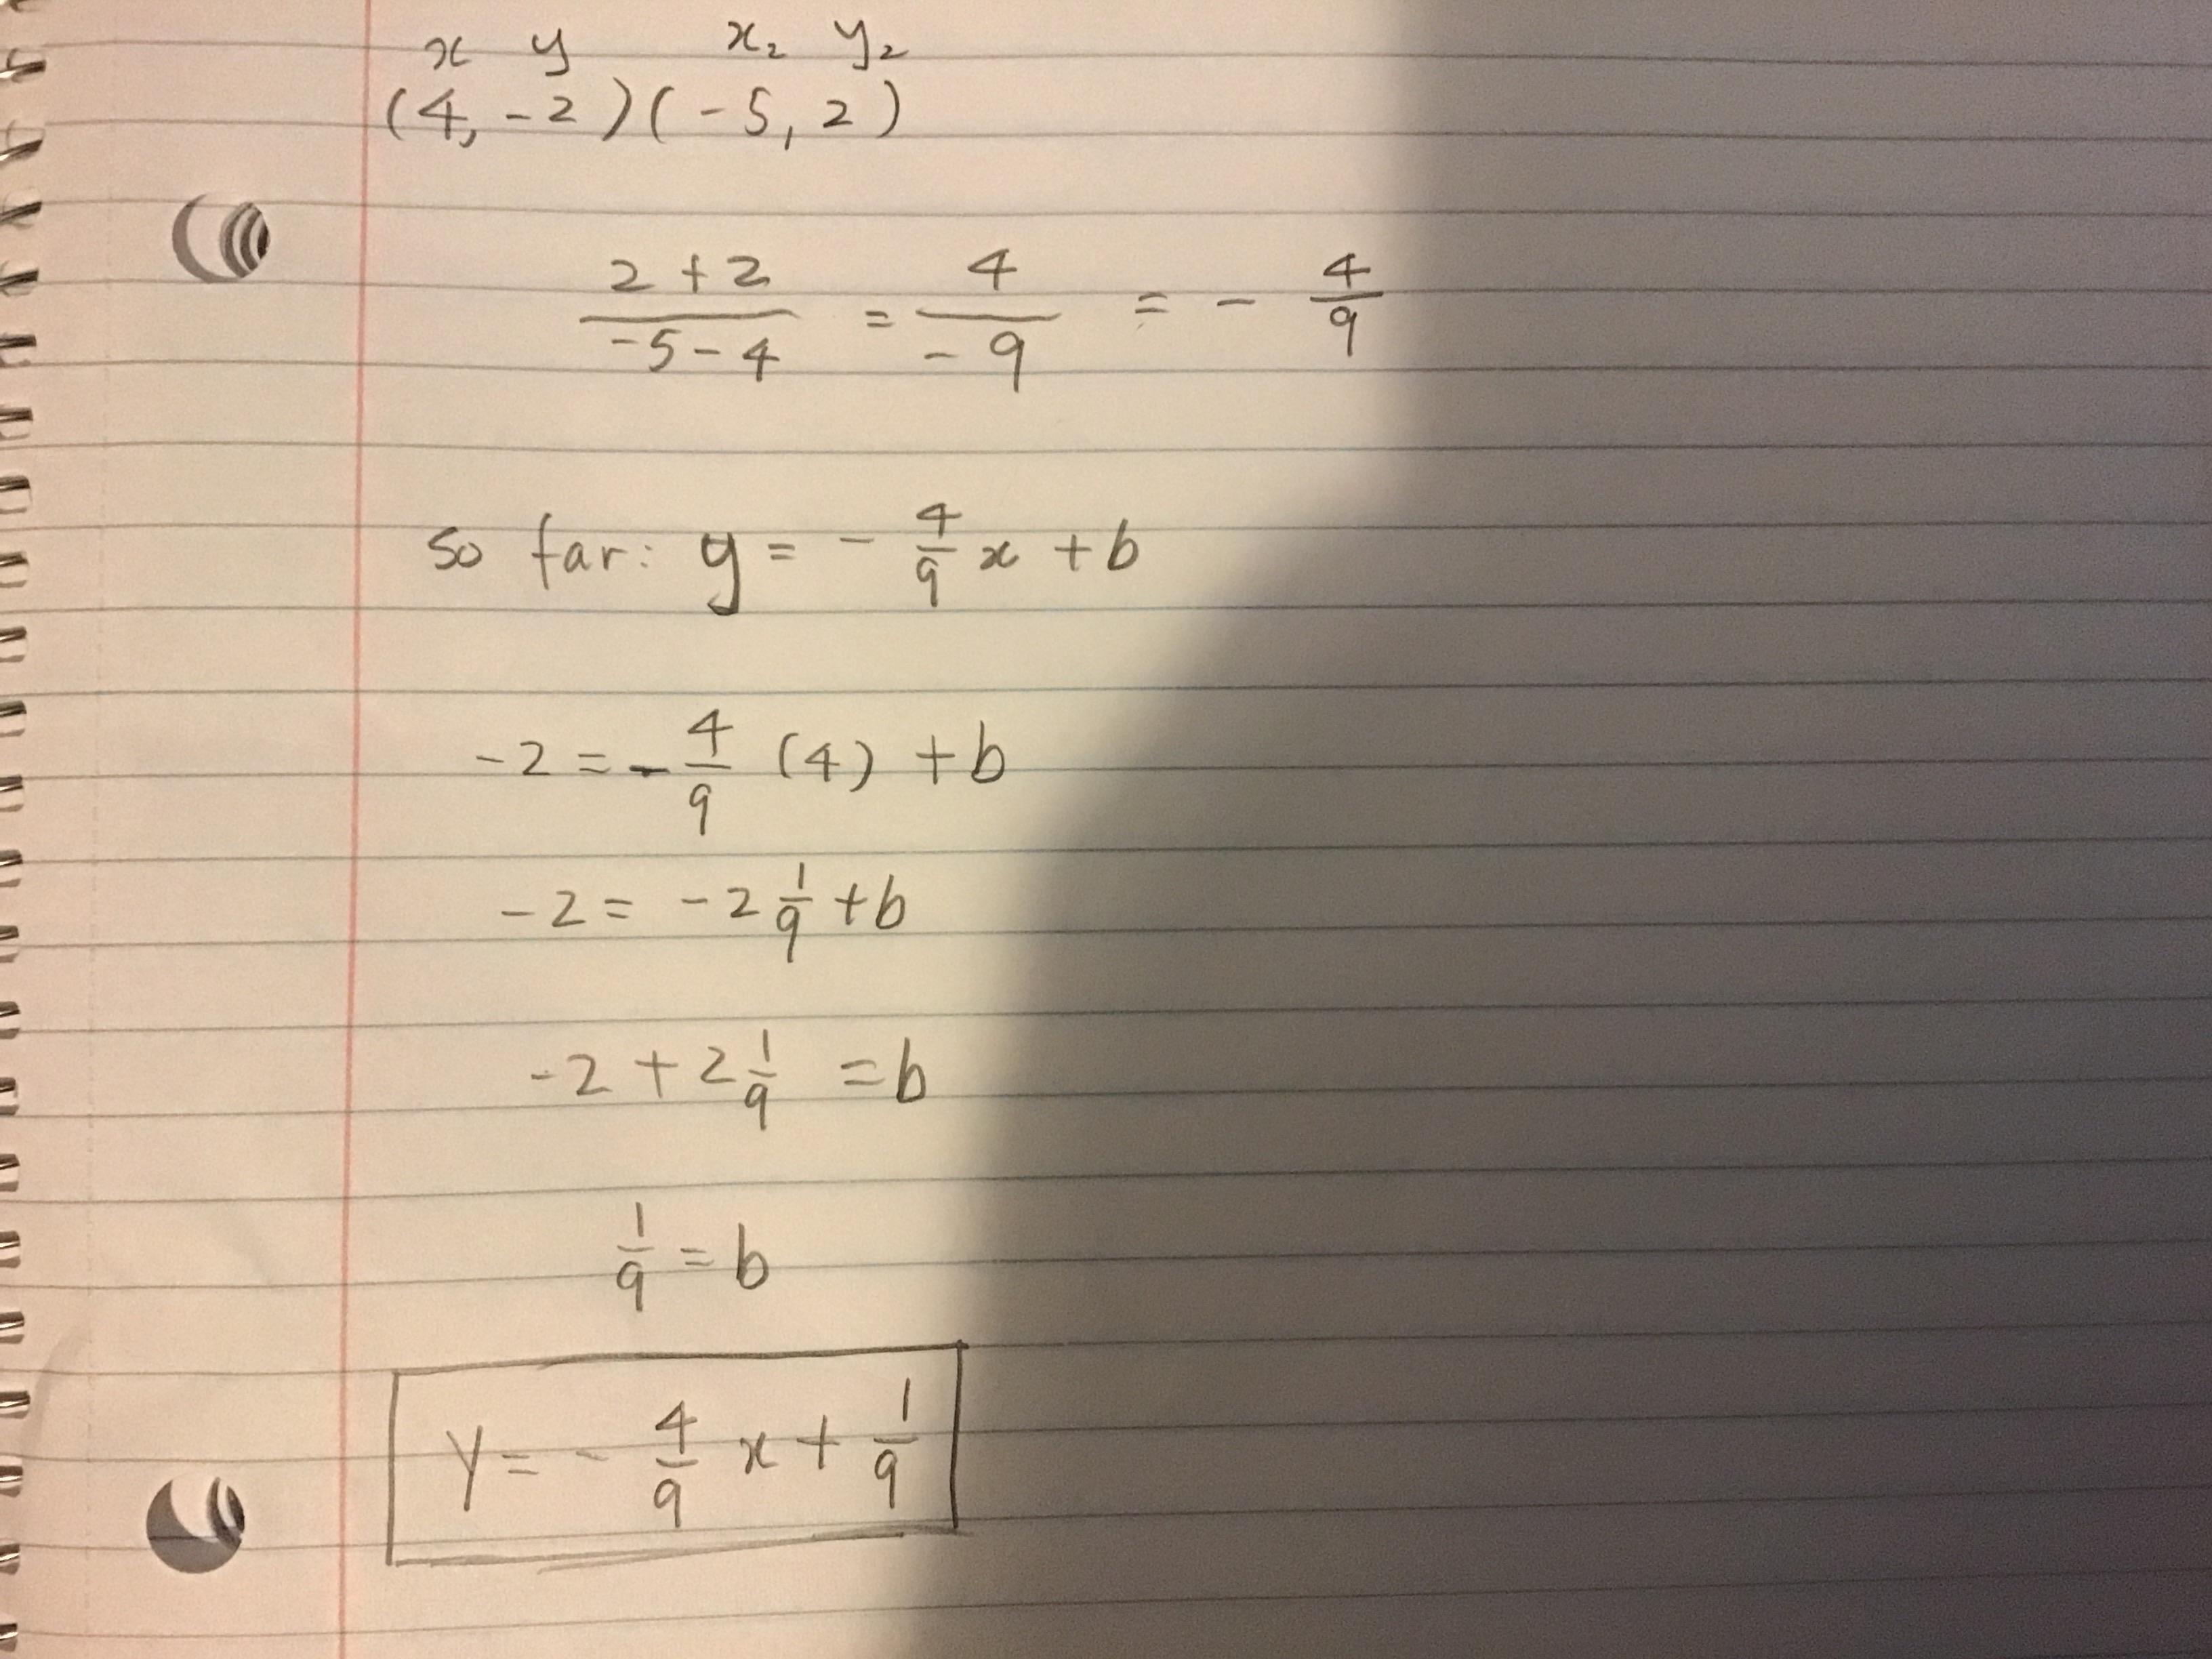 x y x₂ y₂
(4, -2)(-5, 2)
2+2/-5-4 = 4/-9 = - 4/9
so far: y = - 4/9 x + b
-2 = - 4/9 (4) + b
-2 = -2 1/9 + b
-2 + 2 1/9 = b
1/9 = b
y = - 4/9 x + 1/9